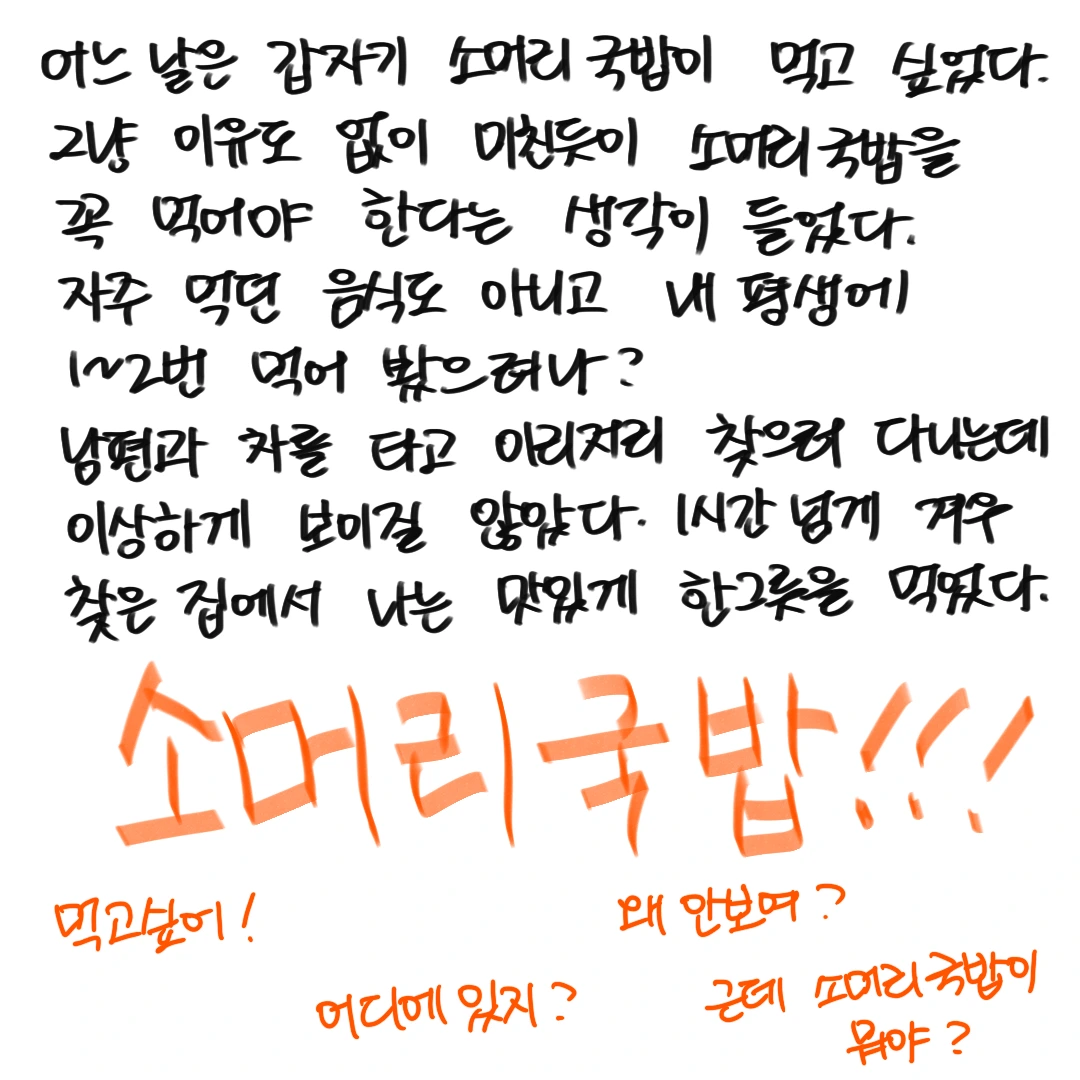 어느 날은 갑자기 소머리국밥이 먹고 싶었다.
그냥 이유도 없이 미친듯이 소머리국밥을
꼭 먹어야 한다는 생각이 들었다.
자주 먹던 음식도 아니고 내 평생에
1~2번 먹어 봤으려나?
남편과 차를 타고 이리저리 찾으러 다니는데
이상하게 보이질 않았다. 1시간 넘게 겨우
찾은 집에서 나는 맛있게 한그릇을 먹었다.
소머리국밥!!!
먹고싶어!
왜 안보여?
어디에 있지?
근데 소머리국밥이
뭐야?